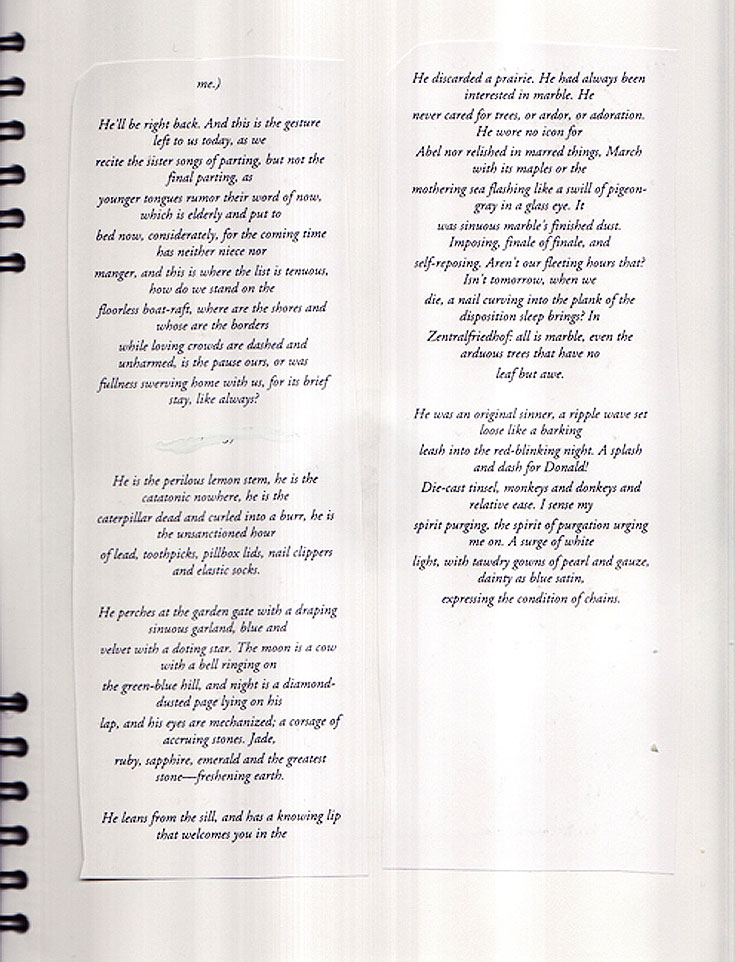 me.)
He'll be right back. And this is the gesture
left to us today, as we
recite the sister songs of parting, but not the
final parting, as
younger tongues rumor their word of now,
which is elderly and put to
bed now, considerately, for the coming time
has neither niece nor
manger, and this is where the list is tenuous,
how do we stand on the
floorless boat-raft, where are the shores and
whose are the borders
while loving crowds are dashed and
unharmed, is the pause ours, or was
fullness swerving home with us, for its brief
stay, like always?
He is the perilous lemon stem, he is the
catatonic nowhere, he is the
caterpillar dead and curled into a burr, he is
the unsanctioned hour
of lead, toothpicks, pillbox lids, nail clippers
and elastic socks.
He perches at the garden gate with a draping
sinuous garland, blue and
velvet with a doting star. The moon is a cow
with a bell ringing on
the green-blue hill, and night is a diamond-
dusted page lying on his
lap, and his eyes are mechanized; a corsage of
accruing stones. Jade,
ruby, sapphire, emerald and the greatest
stone—freshening earth.
He leans from the sill, and has a knowing lip
that welcomes you in the
He discarded a prairie. He had always been
interested in marble. He
never cared for trees, or ardor, or adoration.
He wore no icon for
Abel nor relished in marred things, March
with its maples or the
mothering sea flashing like a swill of pigeon-
gray in a glass eye. It
was sinuous marble's finished dust.
Imposing, finale of finale, and
self-reposing. Aren't our fleeting hours that?
Isn't tomorrow, when we
die, a nail curving into the plank of the
disposition sleep brings? In
Zentralfriedhof: all is marble, even the
arduous trees that have no
leaf but awe.
He was an original sinner, a ripple wave set
loose like a barking
leash into the red-blinking night. A splash
and dash for Donald!
Die-cast tinsel, monkeys and donkeys and
relative ease. I sense my
spirit purging, the spirit of purgation urging
me on. A surge of white
light, with tawdry gowns of pearl and gauze,
dainty as blue satin,
expressing the condition of chains.